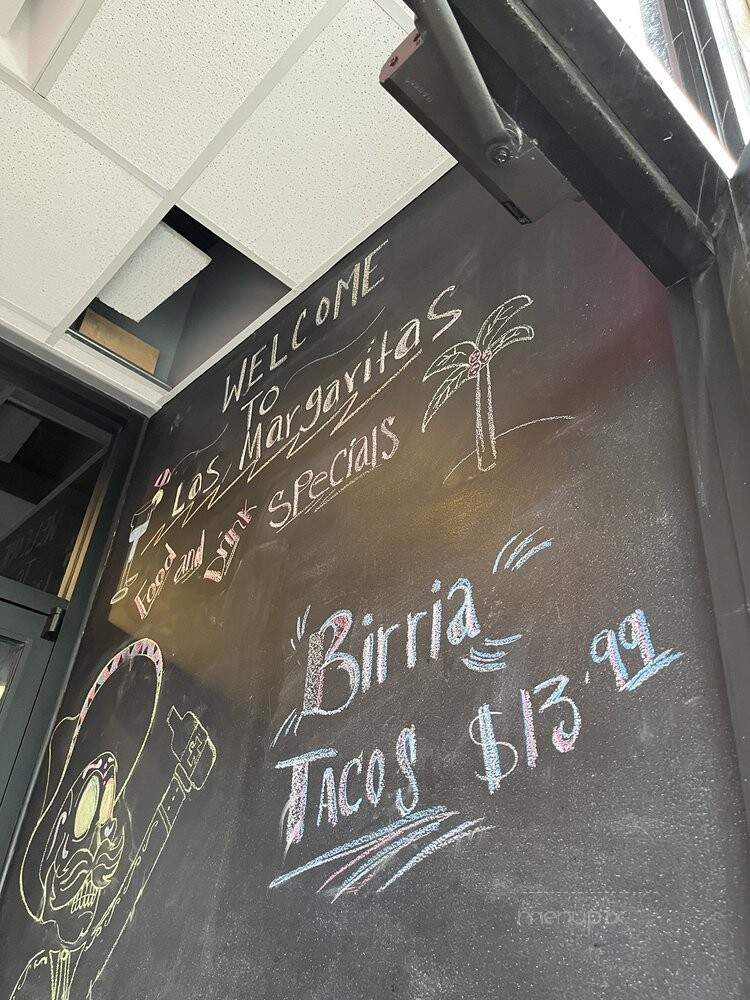 WELCOME
TO
Las Margaritas
Food and Drink SPECiALS
"Birria"
TACOS $13.99
menupix